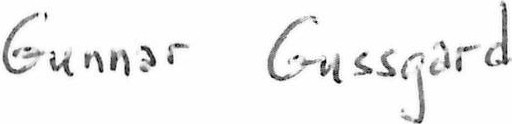 Gunnar Gussgard